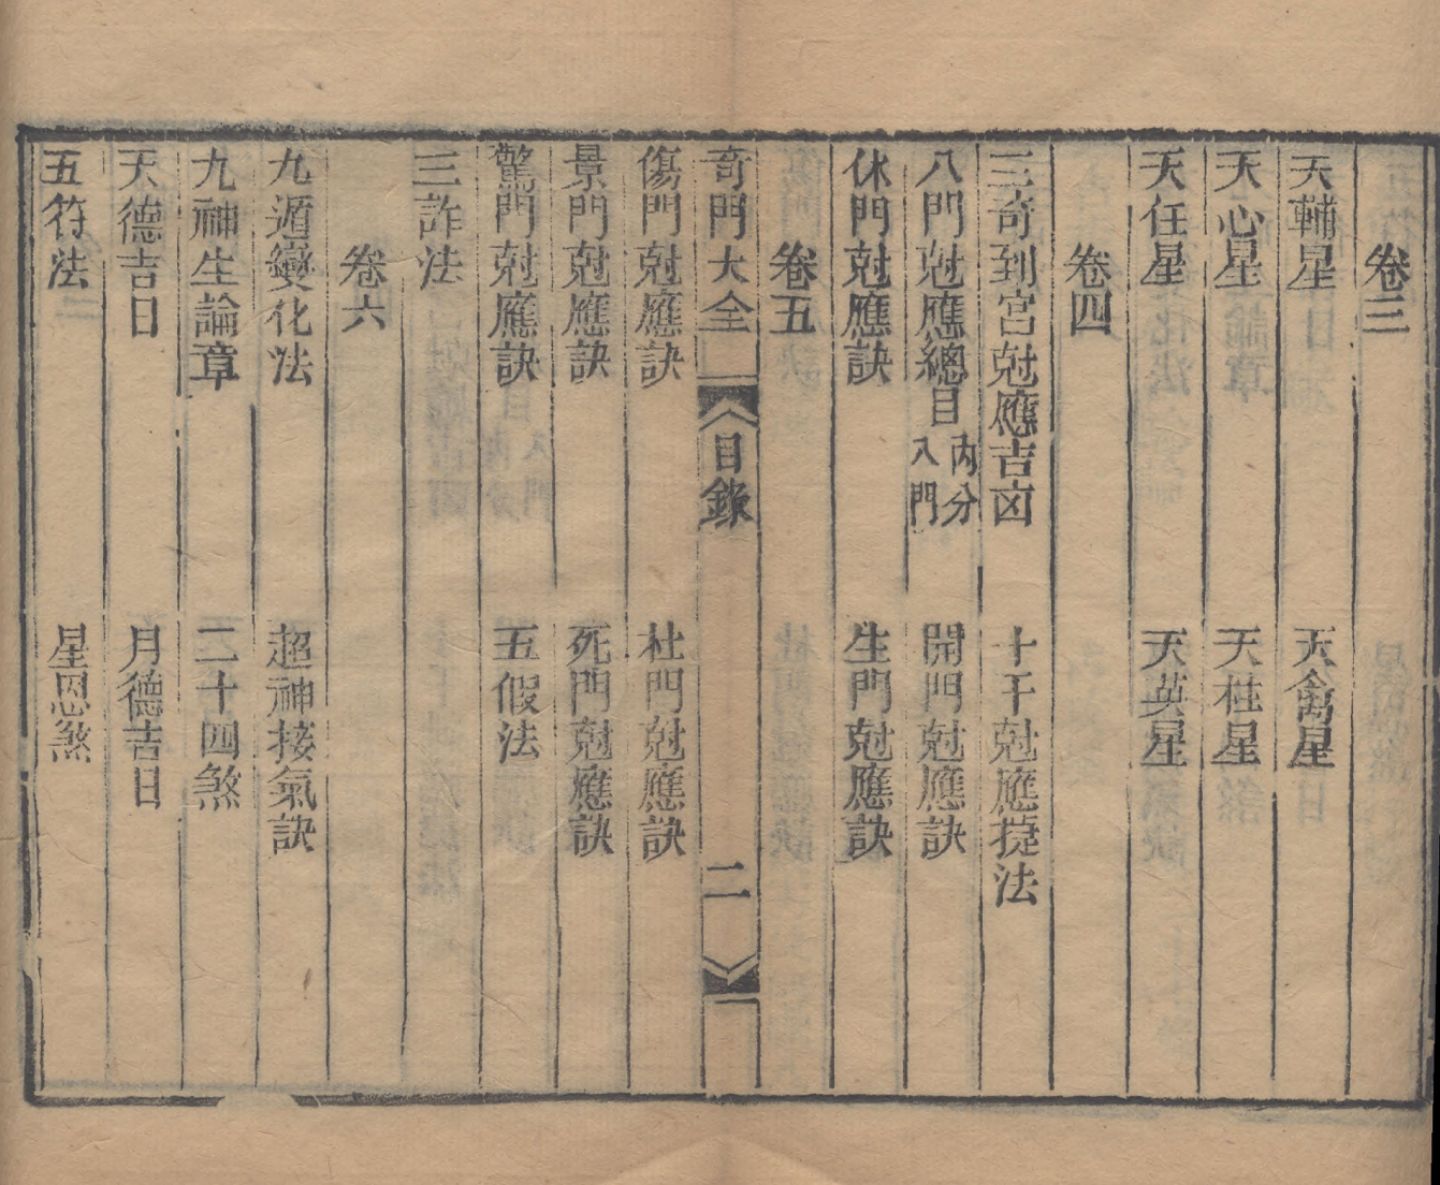 卷三
天輔星　天禽星
天心星　天柱星
天任星　天英星
卷四
三奇到宮尅應吉凶　十干尅應㨗法
八門尅應總目內分八門　開門尅應訣
休門尅應訣　生門尅應訣
卷五
奇門大全　目錄　二
傷門尅應訣　杜門尅應訣
景門尅應訣　死門尅應訣
驚門尅應訣　五假法
三詐法
卷六
九遁變化法　超神接氣訣
九神生論章　二十四煞
天德吉日　月德吉日
五符法　星恩煞